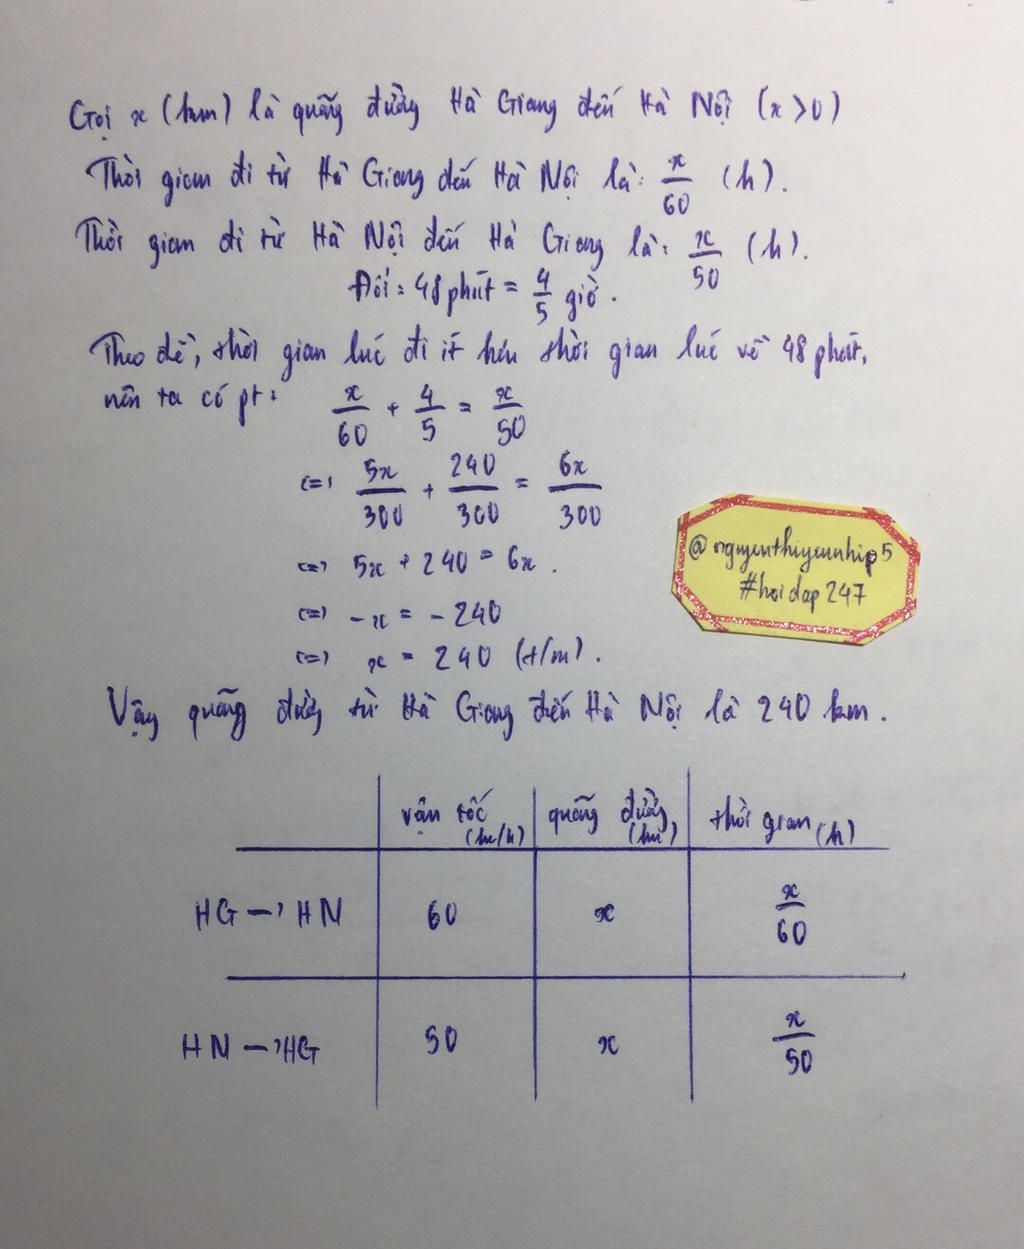 Gọi x (km) là quãng đường Hà Giang đến Hà Nội (x > 0)
Thời gian đi từ Hà Giang đến Hà Nội là: x/60 (h).
Thời gian đi từ Hà Nội đến Hà Giang là: x/50 (h).
Đổi: 48 phút = 4/5 giờ.
Theo đề, thời gian lúc đi ít hơn thời gian lúc về 48 phút,
nên ta có pt:
x/60 + 4/5 = x/50
<=> 5x/300 + 240/300 = 6x/300
<=> 5x + 240 = 6x.
<=> -x = -240
<=> x = 240 (t/m).
Vậy quãng đường từ Hà Giang đến Hà Nội là 240 km.
@nguyenthiyennhip5
#hoidap247
vận tốc (km/h) quãng đường (km) thời gian (h)
HG → HN 60 x x/60
HN → HG 50 x x/50